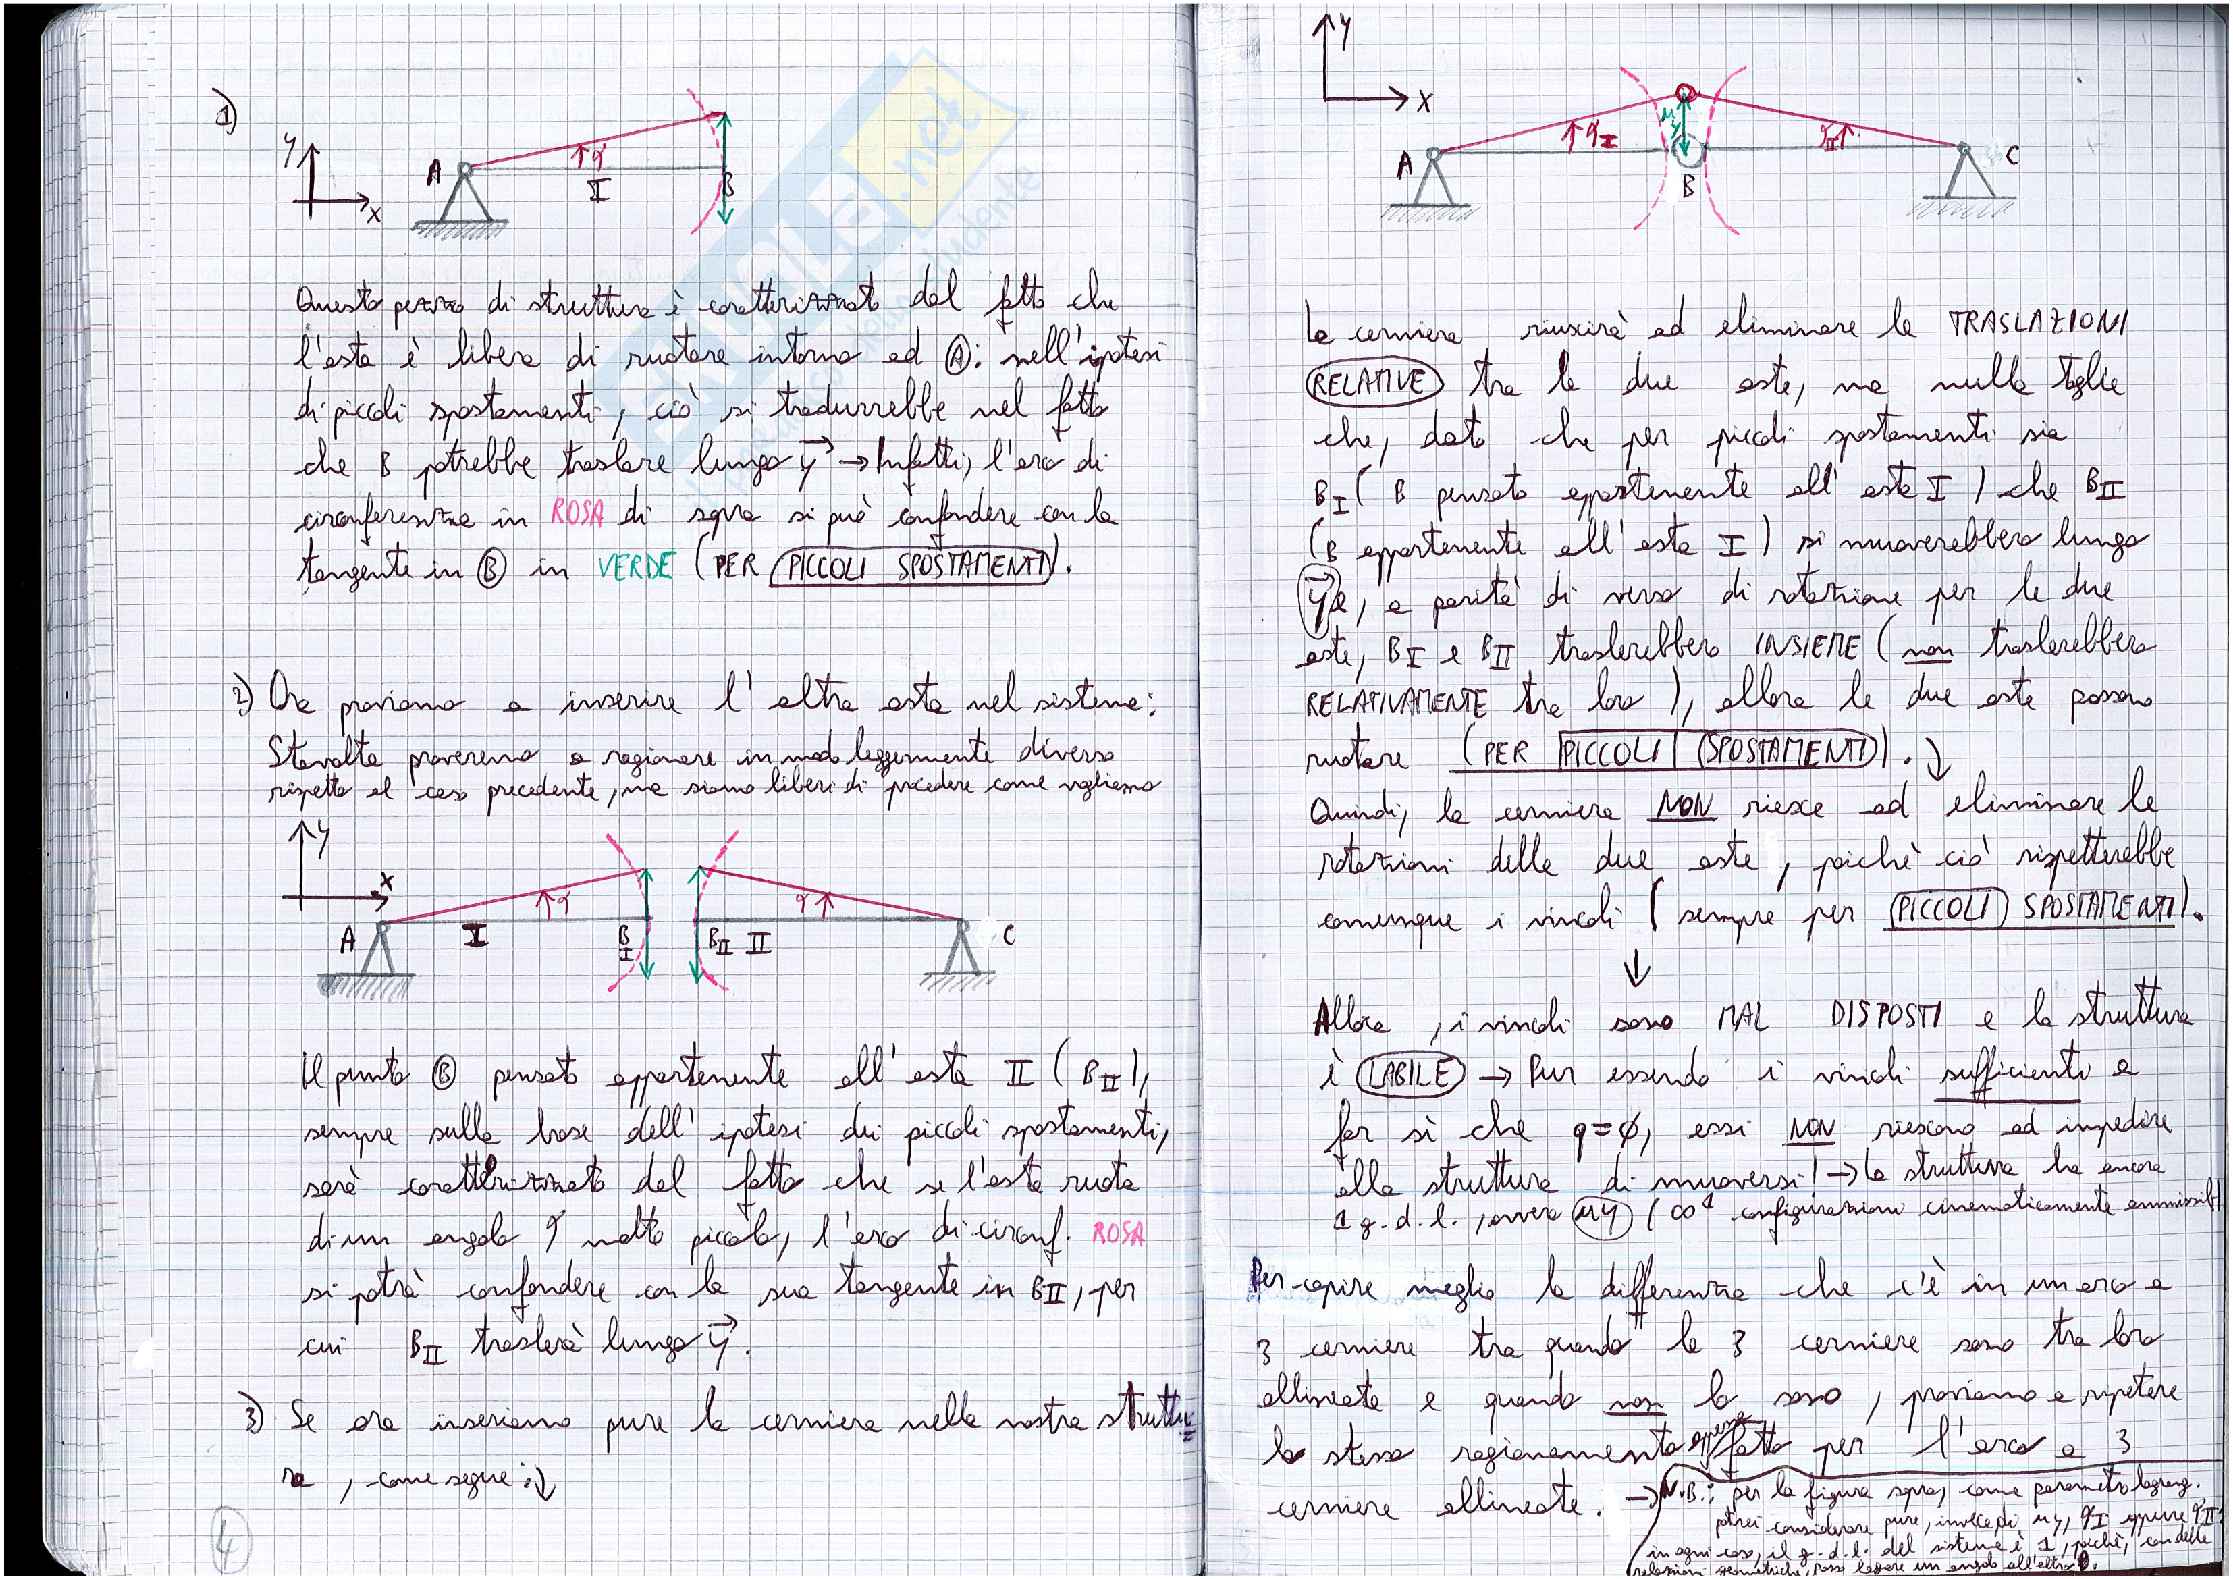 1)
y
x
A
I
φ
B
Questo pezzo di struttura è caratterizzato dal fatto che
l'asta è libera di ruotare intorno ad Ⓐ: nell'ipotesi
di piccoli spostamenti, ciò si tradurrebbe nel fatto
che B potrebbe traslare lungo y → Infatti, l'arco di
circonferenza in ROSA di sopra si può confondere con la
tangente in Ⓑ in VERDE (PER PICCOLI SPOSTAMENTI).
2) Ora proviamo a inserire l'altra asta nel sistema:
Stavolta proveremo a ragionare in modo leggermente diverso
rispetto al caso precedente, ma siamo liberi di procedere come vogliamo
y
x
A
I
φ
B I
B II
II
φ
C
Il punto Ⓑ pensato appartenente all'asta II (B II),
sempre sulla base dell'ipotesi dei piccoli spostamenti,
sarà caratterizzato dal fatto che se l'asta ruota
di un angolo φ molto piccolo, l'arco di circonf. ROSA
si potrà confondere con la sua tangente in BII, per
cui BII traslerà lungo y.
3) Se ora inseriamo pure la cerniera nella nostra struttu=
ra, come segue: ↓
4
y
x
A
φI
uy
B
φII
C
La cerniera riuscirà ad eliminare le TRASLAZIONI
RELATIVE tra le due aste, ma nulla toglie
che, dato che per piccoli spostamenti sia
BI (B pensato appartenente all'asta I) che BII
(B appartenente all'asta I) si muoverebbero lungo
y e, a parità di verso di rotazione per le due
aste, BI e BII traslerebbero INSIEME (non traslerebbero
RELATIVAMENTE tra loro), allora le due aste possono
ruotare (PER PICCOLI SPOSTAMENTI). ↓
Quindi, la cerniera NON riesce ad eliminare le
rotazioni delle due aste, poichè ciò rispetterebbe
comunque i vincoli (sempre per PICCOLI SPOSTAMENTI).
↓
Allora, i vincoli sono MAL DISPOSTI e la struttura
è LABILE → Pur essendo i vincoli sufficienti a
far sì che q=φ, essi NON riescono ad impedire
alla struttura di muoversi! → La struttura ha ancora
1 g.d.l., ovvero uy (∞¹ configurazioni cinematicamente ammissib
Per capire meglio la differenza che c'è in un arco a
3 cerniere tra quando le 3 cerniere sono tra loro
allineate e quando non lo sono, proviamo a ripetere
lo stesso ragionamento appena fatto per l'arco a 3
cerniere allineate. → N.B.: per la figura sopra, come parametro lagrang.
potrei considerare pure, invece di uy, φI oppure φII:
in ogni caso, il g.d.l. del sistema è 1, poichè, con delle
relazioni geometriche, posso legare un angolo all'altro.